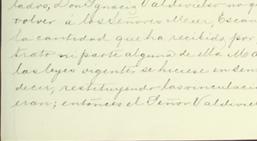 tados, Don Ignacio Valdivielso no qu
volver á los Señores Meer, Escan
la cantidad que ha recibido por
trato ni parte alguna de ella. Mas
las leyes vigentes se hiciese en sen
decer, restituyendo las vinculacio
eran; entonces el Señor Valdivie